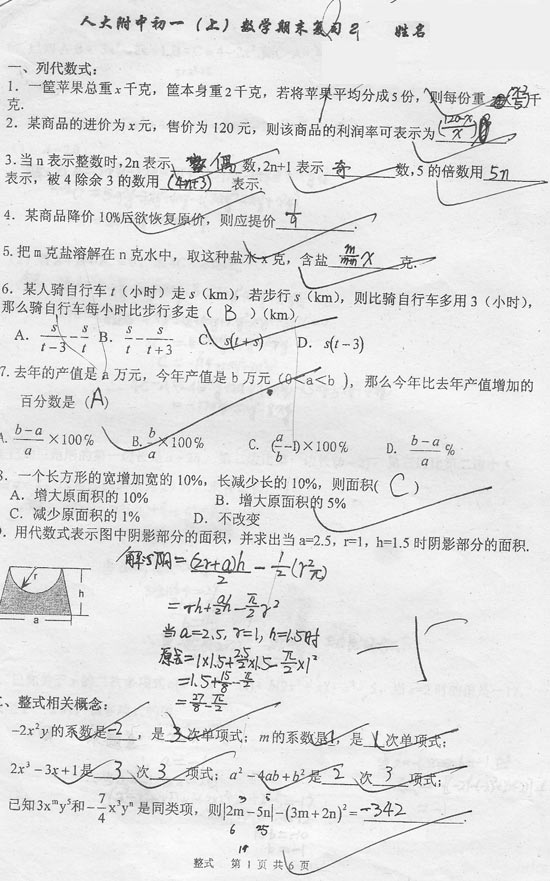 人大附中初一（上）数学期末复习2 姓名
一、列代数式：
1. 一筐苹果总重x千克，筐本身重2千克，若将苹果平均分成5份，则每份重 千
克.
2. 某商品的进价为x元，售价为120元，则该商品的利润率可表示为(120-x/x)
3.当n表示整数时,2n表示 偶 数,2n+1表示 奇 数,5的倍数用 5n
表示，被4除余3的数用 (4n+3) 表示.
4. 某商品降价10%后欲恢复原价，则应提价 1/9 .
5.把m克盐溶解在n克水中，取这种盐水x克，含盐 m/m+n x 克.
6. 某人骑自行车t（小时）走s（km），若步行s（km），则比骑自行车多用3（小时），
那么骑自行车每小时比步行多走（ B ）（km）
A. s/t-3 - s/t B. s/t - s/t+3 C. s(t+s) D. s(t-3)
7.去年的产值是a万元，今年产值是b万元（0<a<b），那么今年比去年产值增加的
百分数是（A）
A. b-a/a ×100% B. b/a ×100% C. (a/b -1)×100% D. b-a/a %
8. 一个长方形的宽增加宽的10%，长减少长的10%，则面积( C )
A. 增大原面积的10% B. 增大原面积的5%
C. 减少原面积的1% D. 不改变
. 用代数式表示图中阴影部分的面积，并求出当a=2.5，r=1，h=1.5时阴影部分的面积.
解:S阴= (2r+a)h/2 - 1/2(r²π)
r
h
a
= rh+ ah/2 - π/2 r²
当a=2.5, r=1, h=1.5时
原式=1×1.5+ 2.5/2 ×1.5- π/2 ×1²
=1.5+ 15/8 - π/2
= 27/8 - π/2
、整式相关概念：
-2x²y的系数是 -2 ，是 3 次单项式；m的系数是 1 ，是 1 次单项式；
2x³-3x+1是 3 次 3 项式；a²-4ab+b²是 2 次 3 项式；
已知3xᵐy⁵和- 7/4 x³yⁿ是同类项，则|2m-5n|-(3m+2n)²= -342 .
3 5
6 25
19
整式 第1页共6页